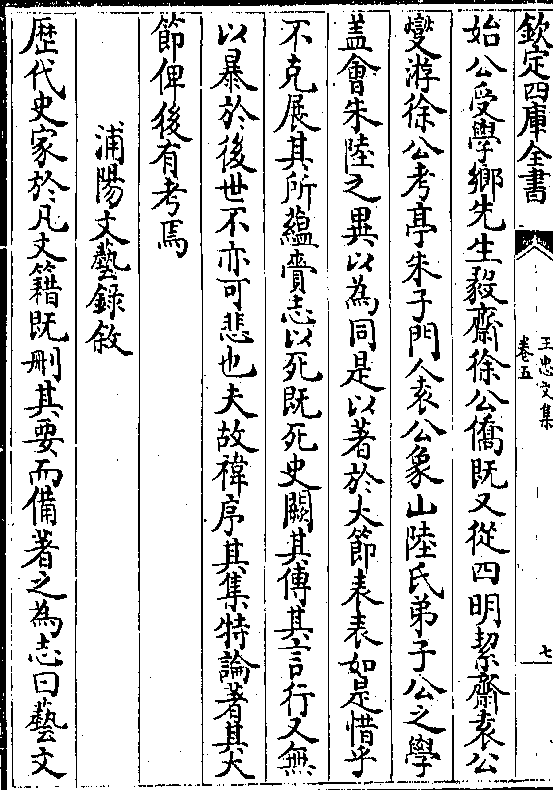 欽定四庫全書
王忠文集
卷五
七
始公受學鄉先生毅齋徐公僑既又從四明絜齋袁公
燮游徐公考亭朱子門人袁公象山陸氏弟子公之學
盖會朱陸之異以為同是以著於大節表表如是惜乎
不克展其所蘊賫志以死既死史闕其傳其言行又無
以暴於後世不亦可悲也夫故禕序其集特論著其大
節俾後有考焉
浦陽文藝錄敘
歴代史家於凡文籍既刪其要而備著之為志曰藝文